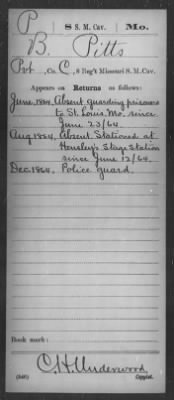 P 8 S. M. Cav. Mo.
B. Pitts
Pvt, Co. C, 8 Reg't Missouri S. M. Cav.
Appears on
Returns as follows:
June, 1864, Absent guarding prisoners
to St. Louis, Mo. since
June 23/64.
Aug. 1864, Absent Stationed at
Hensley's Stage Station
since June 12/64.
Dec. 1864, Police guard.
Book mark:
C. H. Underwood
(546) Copyist.